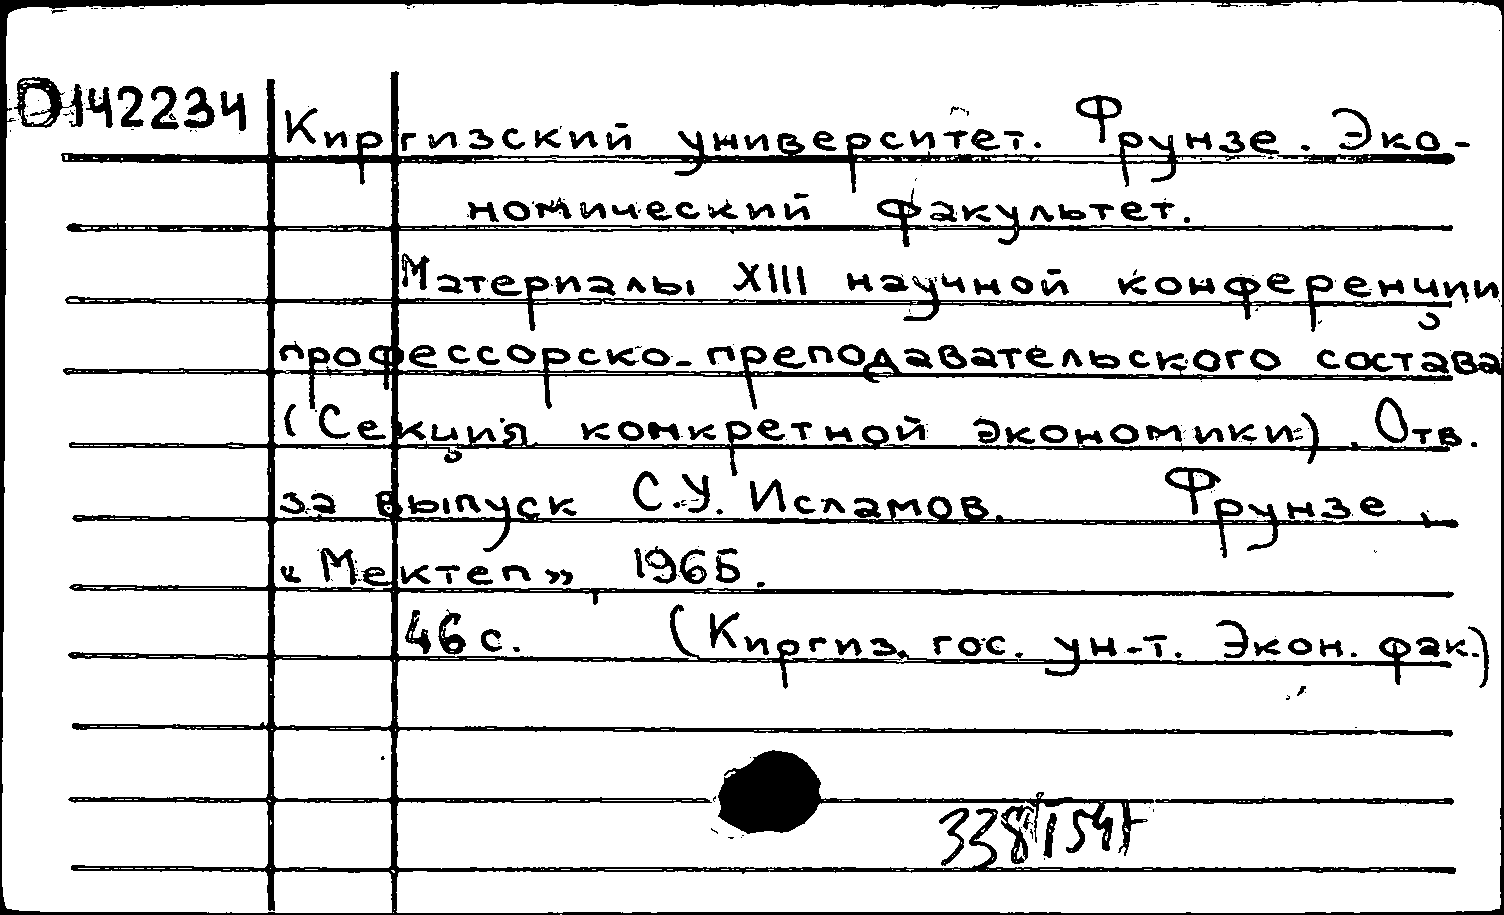 D142234
Киргизский университет. Фрунзе. Эко-
номический факультет.
Материалы XIII научной конференции
профессорско-преподавательского состава
(Секция конкретной экономики). Отв.
за выпуск С.У. Исламов. Фрунзе,
"Мектеп", 1965.
46 с. (Киргиз. гос. ун-т. Экон. фак.)